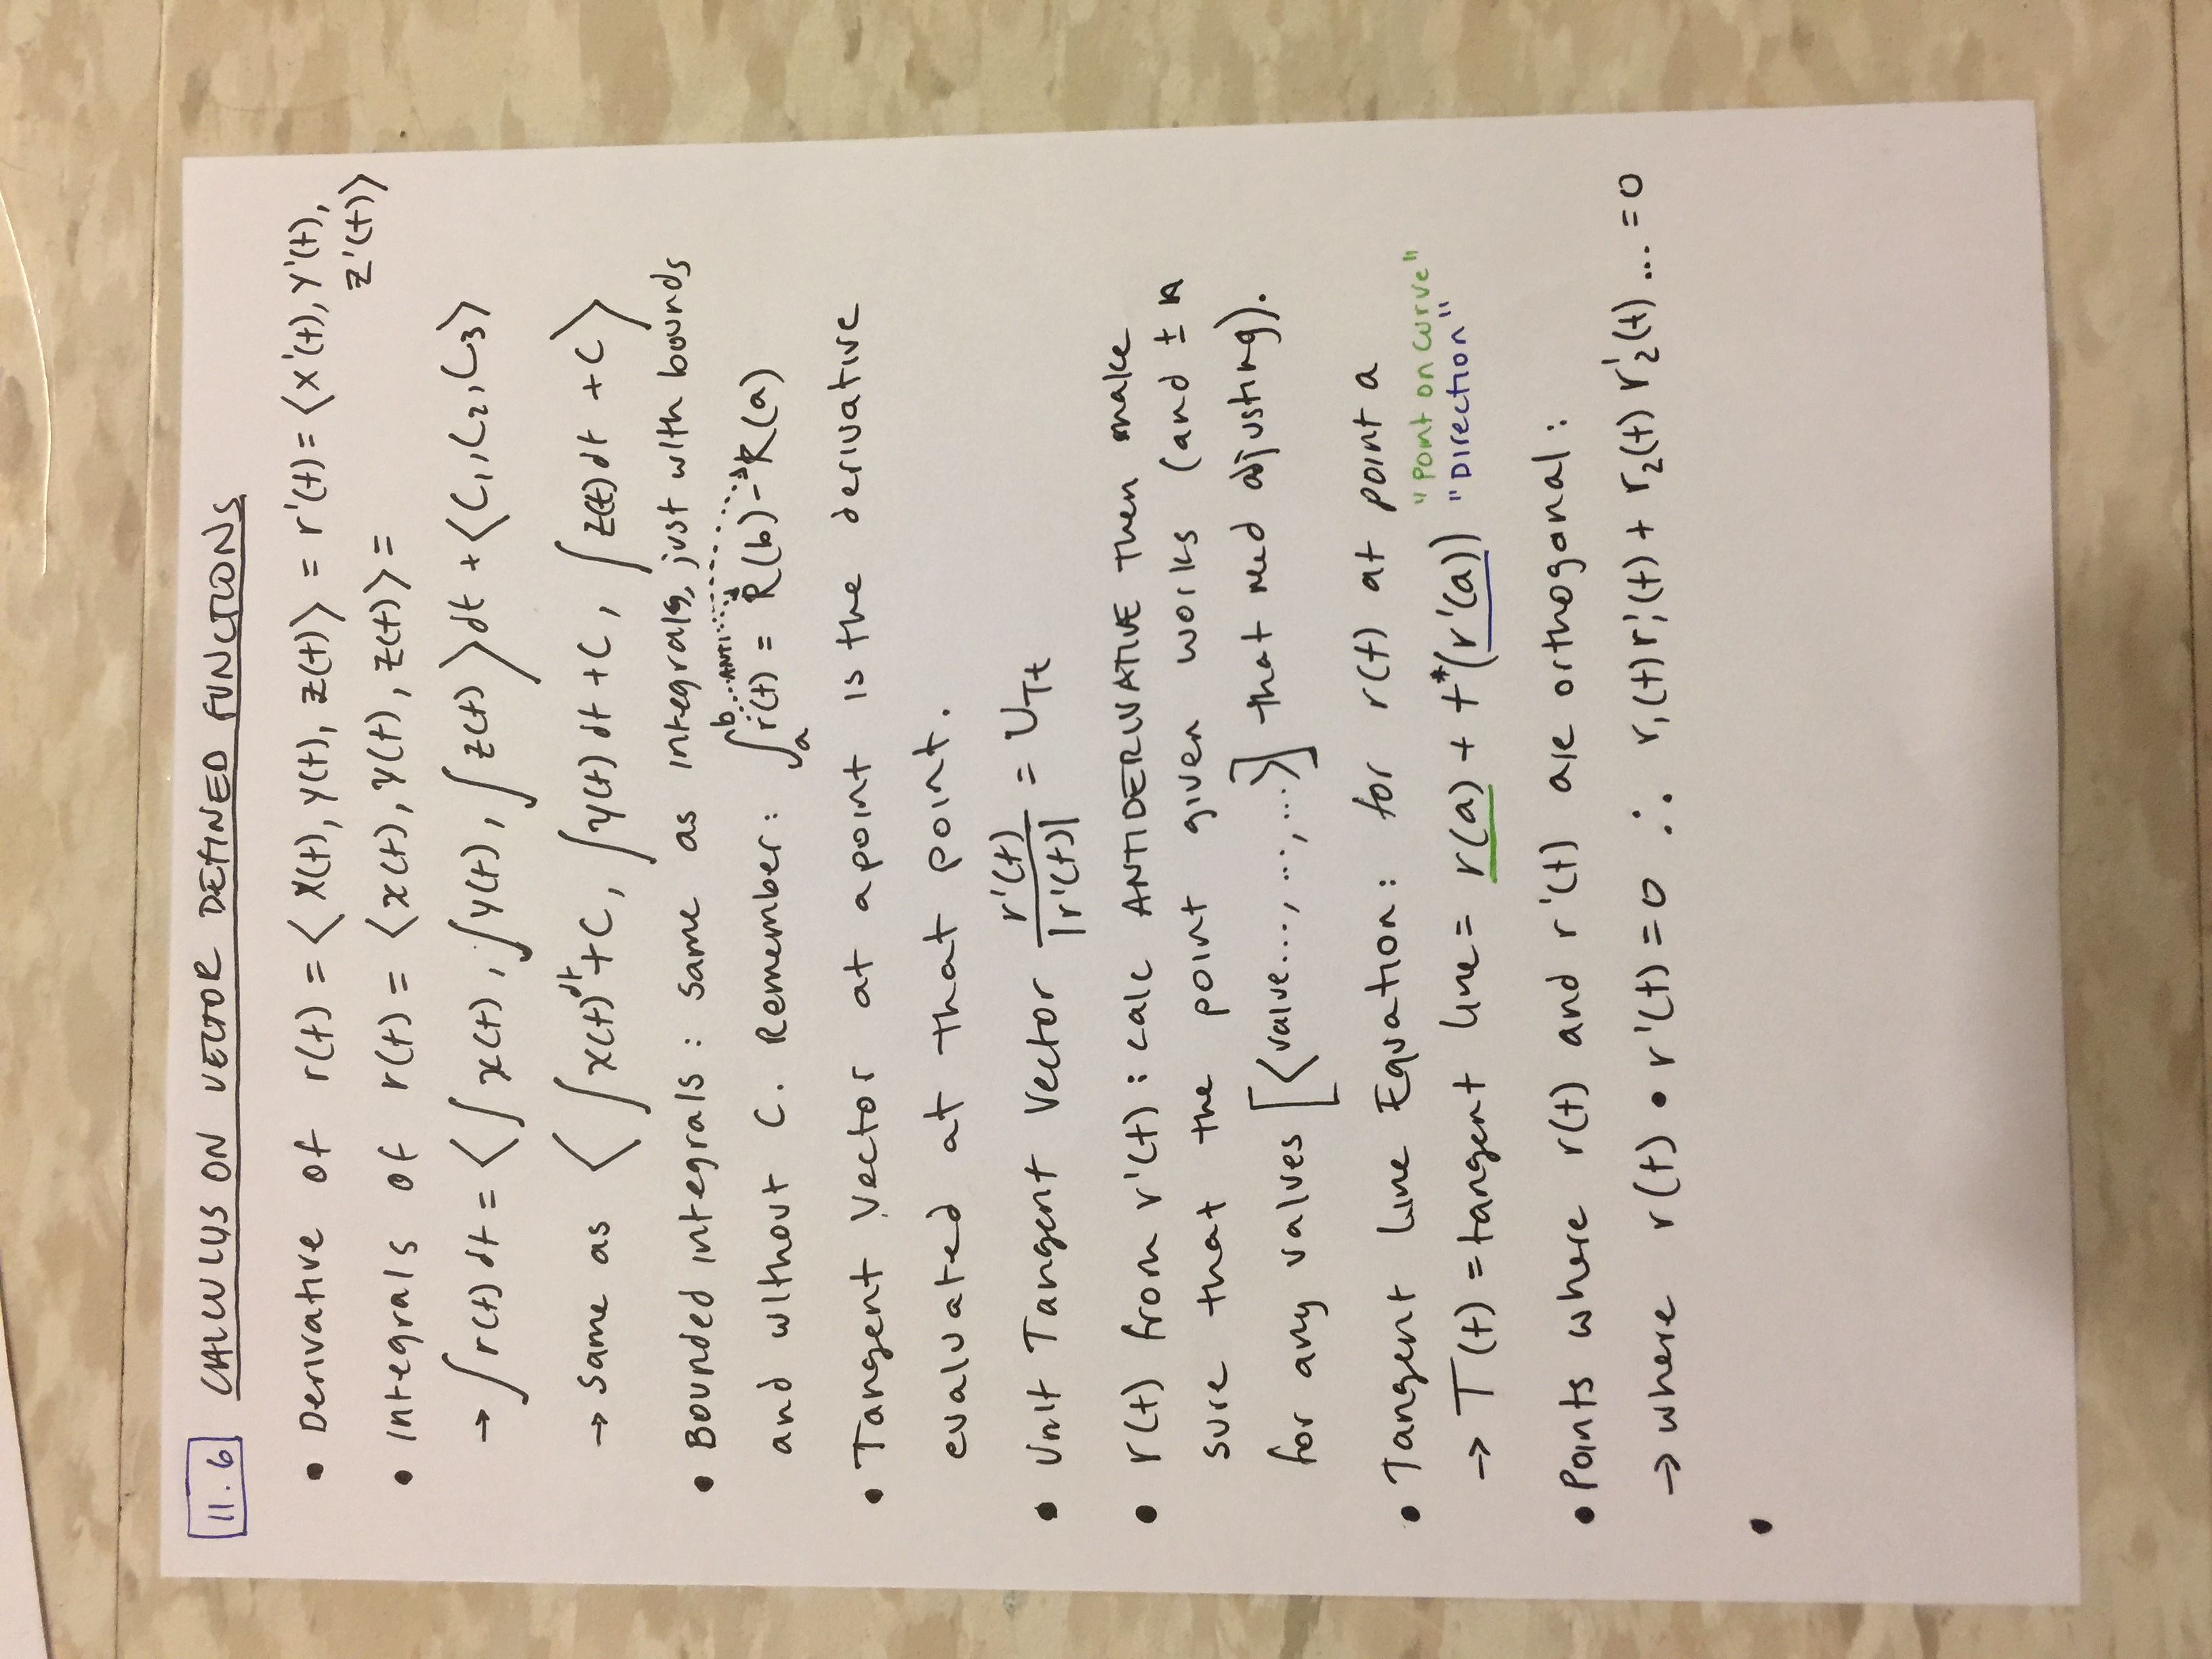 11.6 CALCULUS ON VECTOR DEFINED FUNCTIONS
• Derivative of r(t) = ⟨x(t), y(t), z(t)⟩ = r'(t) = ⟨x'(t), y'(t),
z'(t)⟩
• Integrals of r(t) = ⟨x(t), y(t), z(t)⟩ =
→ ∫r(t) dt = ⟨∫x(t), ∫y(t), ∫z(t)⟩dt + ⟨C₁, C₂, C₃⟩
→ Same as ⟨∫x(t)dt + C, ∫y(t) dt + C, ∫z(t) dt + C⟩
• Bounded integrals: same as integrals, just with bounds
and without C. Remember: ∫ₐᵇ r(t) = R(b) - R(a)
ANTI
• Tangent Vector at a point is the derivative
evaluated at that point.
• Unit Tangent Vector r'(t)/|r'(t)| = U_Tt
• r(t) from r'(t): calc ANTIDERIVATIVE then make
sure that the point given works (and ±
for any values [⟨value..., ..., ...⟩] that need adjusting).
• Tangent Line Equation: for r(t) at point a
"Point on curve"
→ T(t) = tangent line = r(a) + t*(r'(a)) "Direction"
• Points where r(t) and r'(t) are orthogonal:
→ where r(t) • r'(t) = 0 ∴ r₁(t)r₁'(t) + r₂(t) r₂'(t) ... = 0
•